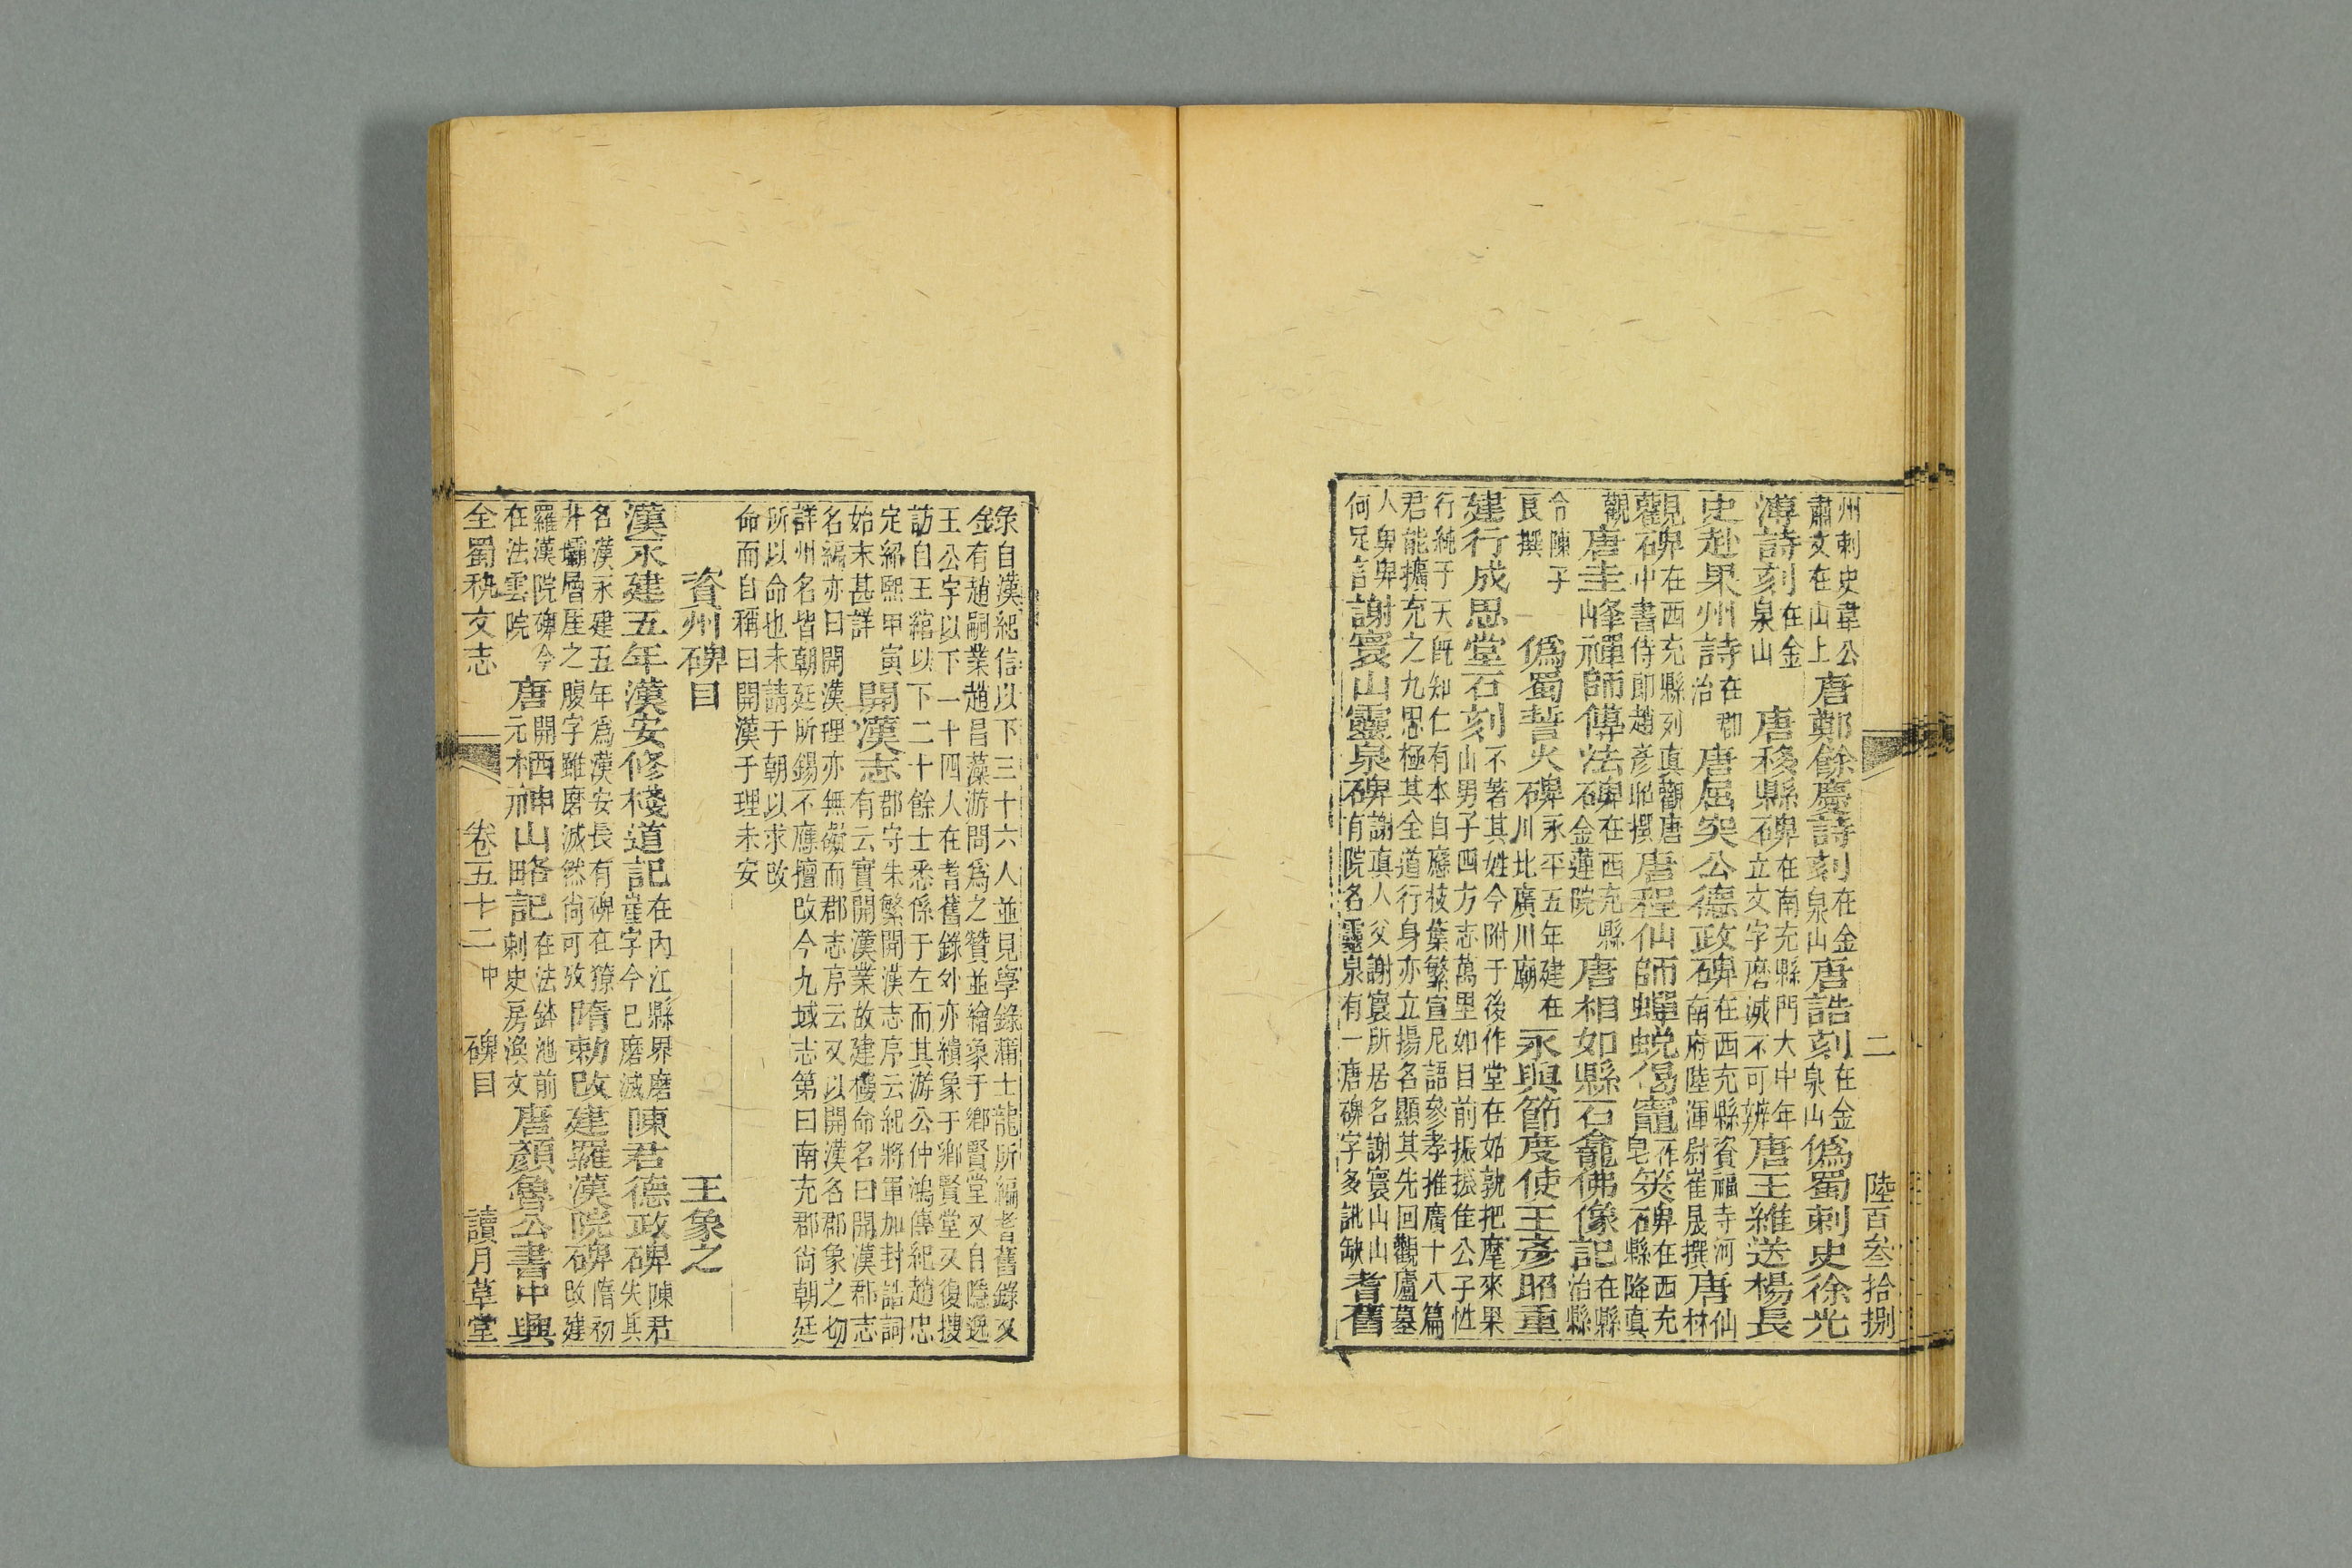 二 陸百叁拾捌
州刺史韋公
肅文在山上
唐鄭餘慶詩刻
在金
泉山
唐誥刻
在金
泉山
偽蜀刺史徐光
溥詩刻
在金
泉山
唐移縣碑
在南充縣門大中年
立文字磨滅不可辨
唐王維送楊長
史赴果州詩
在郡
治
唐屈突公德政碑
在西充縣資福寺河
南府陸渾尉崔晟撰
唐仙林
觀碑
在西充縣列真觀唐
中書侍郎趙彥昭撰
唐程仙師蟬蛻偈竈
在
皂
筴碑
在西充
縣降真
觀
唐圭峰禪師傳法碑
在西充縣
金蓮院
唐相如縣石龕佛像記
在縣
治縣
令陳子
良撰
偽蜀誓火碑
永平五年建在
石川比廣川廟
永興節度使王彥昭重
建行成思堂石刻
不著其姓今附于後作堂在姑孰把麾來果
山男子四方志萬里如目前振振佳公子性
行純于天旣知仁有本自應枝葉繁宣尼語參孝推廣十八篇
君能擴充之九思極其全道行身亦立揚名顯其先回觀廬墓
人卑卑
何足言
謝寰山靈泉碑
謝真人父謝寰所居名謝寰山山
有院名靈泉有一唐碑字多訛缺
耆舊
彔自漢紀信以下三十六人並見學錄蒲士龍所編耆舊錄又
金有趙嗣業趙昌藻游問爲之贊並繪象于鄉賢堂又自隱逸
王公宇以下一十四人在耆舊錄外亦續象于鄉賢堂又復搜
訪自王綰以下二十餘士悉係于左而其游公仲鴻傳紀趙忠
定紹熙甲寅
始末甚詳
開漢志
郡守朱繁開漢志序云紀將軍加封誥詞
有云實開漢業故建樓命名曰開漢郡志
名編亦曰開漢理亦無礙而郡志序云又以開漢名郡象之切
詳州名皆朝廷所錫不應擅改今九域志第曰南充郡尙朝廷
所以命也未請于朝以求改
命而自稱曰開漢于理未安
資州碑目 王象之
漢永建五年漢安修棧道記
在內江縣界磨
崖字今已磨滅
陳君德政碑
陳君
失其
名漢永建五年爲漢安長有碑在獠
井壩層崖之腹字雖磨滅然尙可攷
隋勅改建羅漢院碑
隋初
改建
羅漢院碑今
在法雲院
唐
開
元
栖神山略記
在法鉢池前
刺史房渙文
唐顏魯公書中興
全蜀秇文志 卷五十二中 碑目 讀月草堂